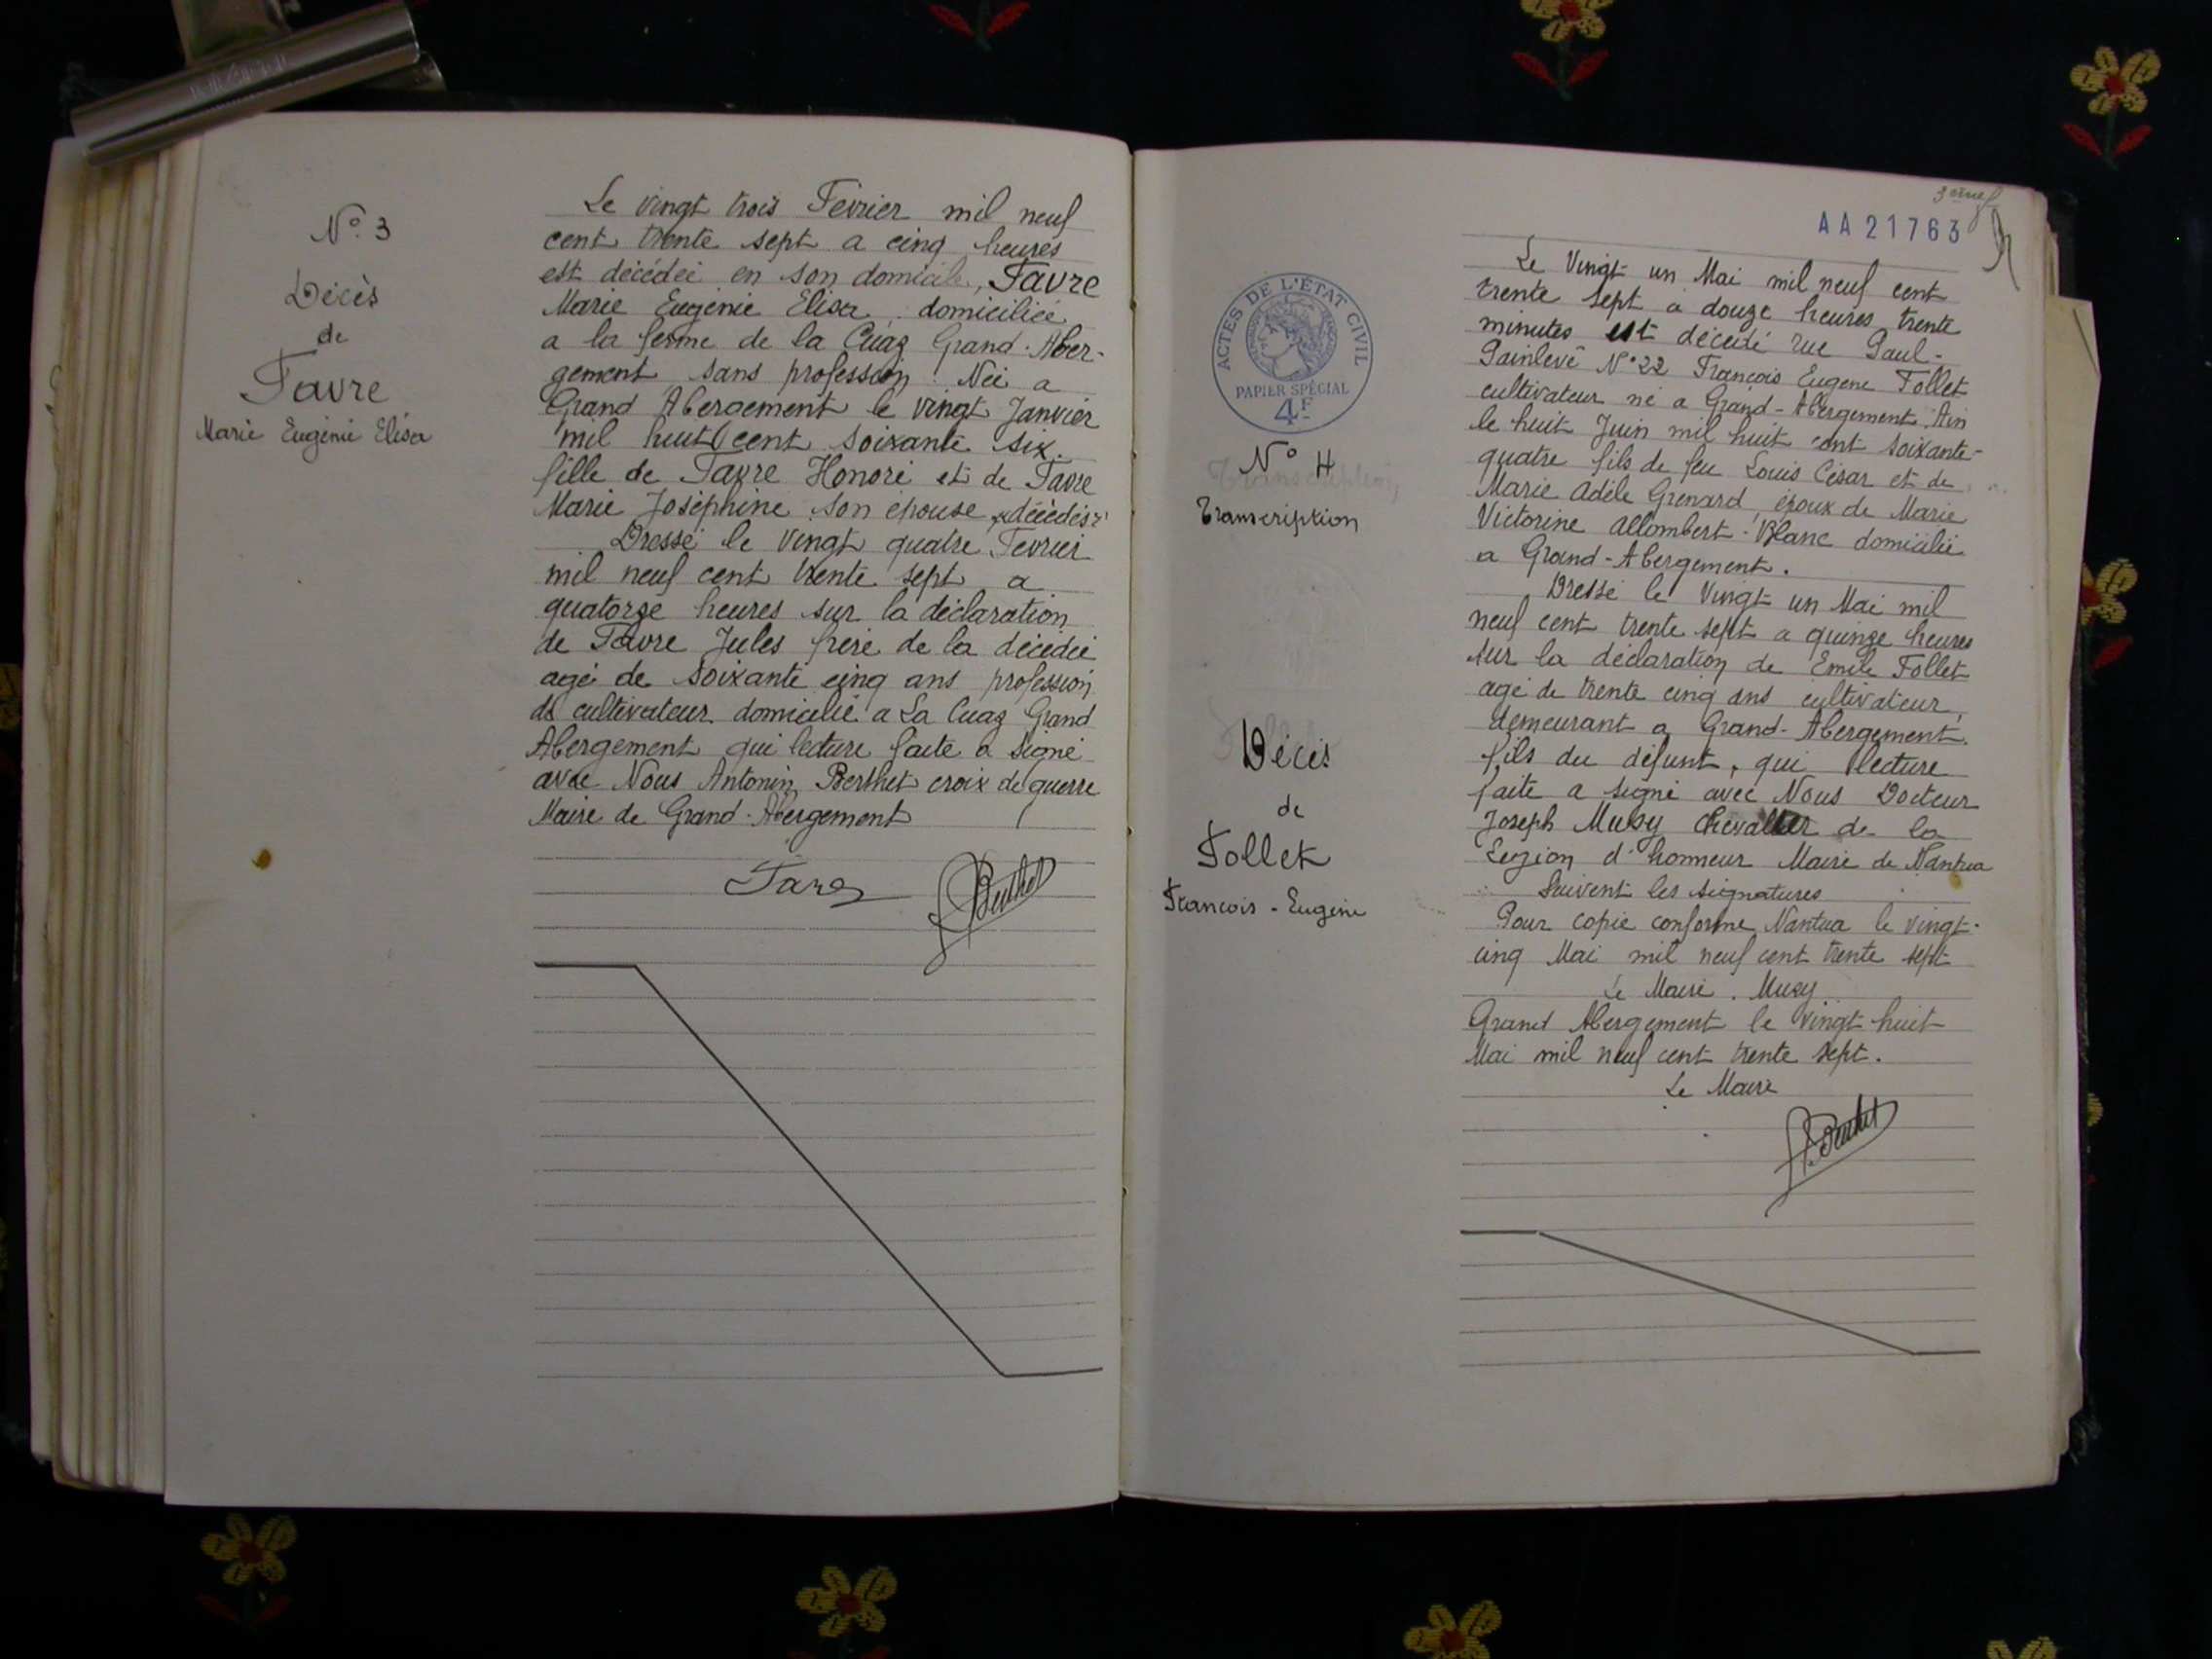 N° 3
Décès
de
Favre
Marie Eugénie Elisa
Le vingt trois Fevrier mil neuf
cent trente sept a cinq heures
est décédée en son domicile, Favre
Marie Eugénie Elisa domiciliée
a la ferme de la Cuaz Grand-Aber-
gement sans profession. Née a
Grand Abergement le vingt Janvier
mil huit cent soixante six.
fille de Favre Honoré et de Favre
Marie Joséphine son épouse, décédés
Dressé le vingt quatre Fevrier
mil neuf cent trente sept a
quatorze heures sur la déclaration
de Favre Jules frère de la décédée
agé de soixante cinq ans profession
de cultivateur domicilié a La Cuaz Grand
Abergement qui lecture faite a signé
avec Nous Antonin Berthet croix de guerre
Maire de Grand-Abergement
Favre Berthet
AA 21763
ACTES DE L'ÉTAT CIVIL
PAPIER SPÉCIAL
4F
N° 4
Transcription
Décès
de
Follet
Francois-Eugène
Le Vingt un Mai mil neuf cent
trente sept a douze heures trente
minutes est décédé rue Paul-
Painlevé N° 22 François Eugene Follet
cultivateur né a Grand-Abergement Ain
le huit Juin mil huit cent soixante-
quatre fils de feu Louis César et de
Marie Adèle Grenard, époux de Marie
Victorine Allombert-Blanc domicilié
a Grand-Abergement.
Dressé le Vingt un Mai mil
neuf cent trente sept a quinze heures
sur la déclaration de Emile Follet
agé de trente cinq ans cultivateur,
demeurant a Grand-Abergement.
fils du défunt, qui lecture
faite a signé avec Nous Docteur
Joseph Musy Chevalier de la
Legion d'honneur Maire de Nantua
Suivent les signatures
Pour copie conforme Nantua le vingt-
cinq Mai mil neuf cent trente sept
Le Maire. Musy
Grand Abergement le vingt huit
Mai mil neuf cent trente sept.
Le Maire
Berthet